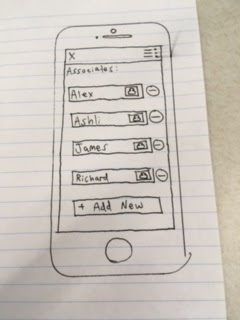 X
Associates:
Alex
Ashli
James
Richard
+ Add New